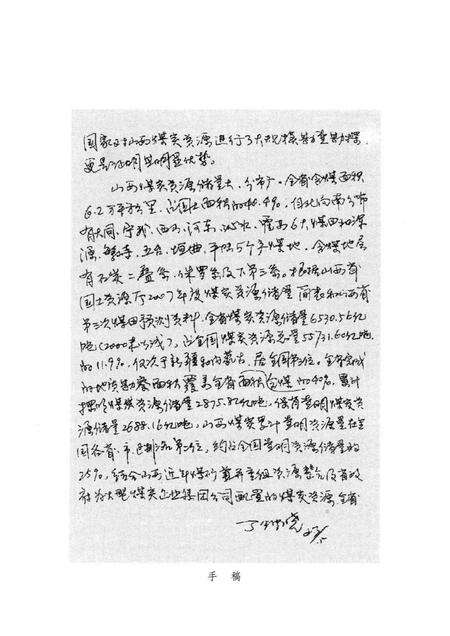 国家对山西煤炭资源进行了大规模
更是证明其明显优势。
山西煤炭资源储量大、分布广。全省含煤面积
6.2万平方公里，占国土面积的40.4%，自北向南分布
有大同、宁武、西山、河东、沁水、霍西6大煤田和浑
源、繁峙、五台、垣曲、平陆5个产煤地。含煤地层
有石炭二叠系、侏罗系及下第三系。根据山西省
国土资源厅2007年度煤炭资源储量简表和山西省
第三次煤田预测资料，全省煤炭资源储量6530.56亿
吨（2000米以浅），占全国煤炭资源总量55731.60亿吨
的11.9%，仅次于新疆和内蒙古，居全国第三位。全省含煤
的地质面积 面积含煤的40%，累计
探明煤炭资源储量2875.82亿吨，保有查明煤炭资
源储量2688.16亿吨，山西煤炭累计查明资源量在全
国各省、市、区第位，约占全国查明资源储量的
25%，结合山西近年煤矿兼并重组资源整合及省政
府为大型煤炭企业集团公司配置的煤炭资源，全省
手 稿